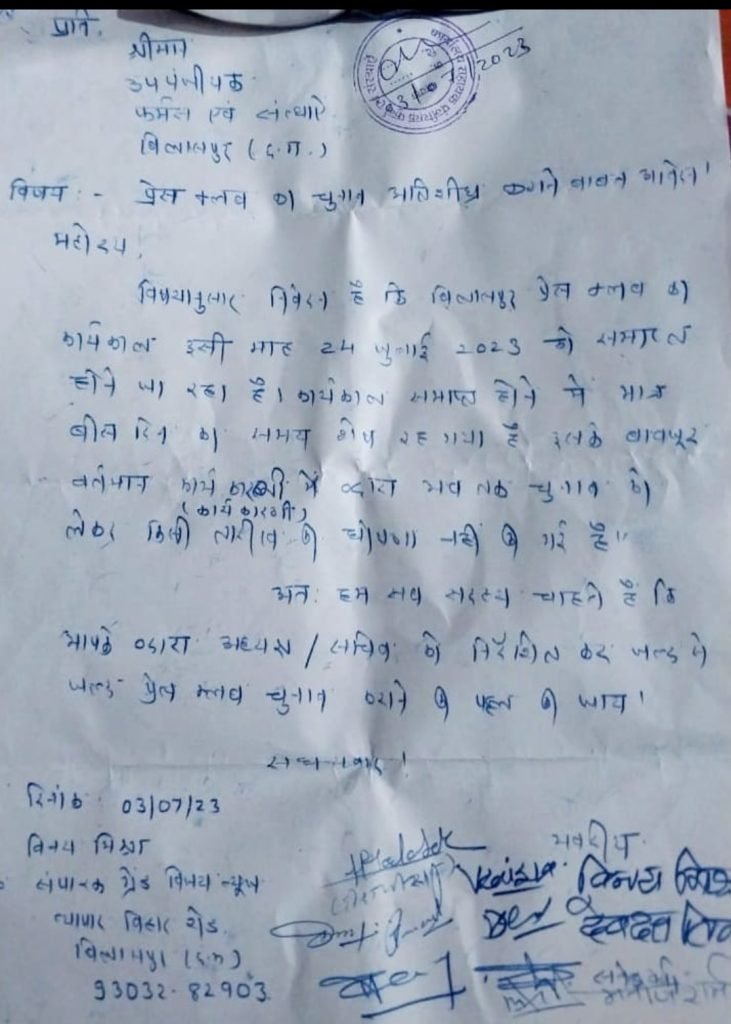 प्रति,
श्रीमान
उपपंजीयक
फर्मस एवं संस्थाऐं
बिलासपुर (छ.ग.)
03/07/2023
विषय :- प्रेस क्लब का चुनाव अतिशीघ्र कराने बाबत आवेदन।
महोदय,
विषयानुसार निवेदन है कि बिलासपुर प्रेस क्लब का
कार्यकाल इसी माह 24 जुलाई 2023 को समाप्त
होने जा रहा है। कार्यकाल समाप्त होने में मात्र
बीस दिन का समय शेष रह गया है इसके बावजूद
वर्तमान कार्य कारणी में व्दारा अब तक चुनाव को
(कार्य कारणी)
लेकर किसी तारीख की घोषणा नहीं की गई है।
अतः हम सब सदस्य चाहते हैं कि
आपके व्दारा अध्यक्ष / सचिव को निर्देशित कर जल्द से
जल्द प्रेस क्लब चुनाव कराने की पहल की जाय।
सधन्यवाद।
दिनांक 03/07/23
भवदीय
विनय मिश्रा
संपादक ग्रेंड विजय न्यूज
व्यापार विहार रोड.
बिलासपुर (छ.ग)
93032-82903
विनय मिश्रा
देवदत्त